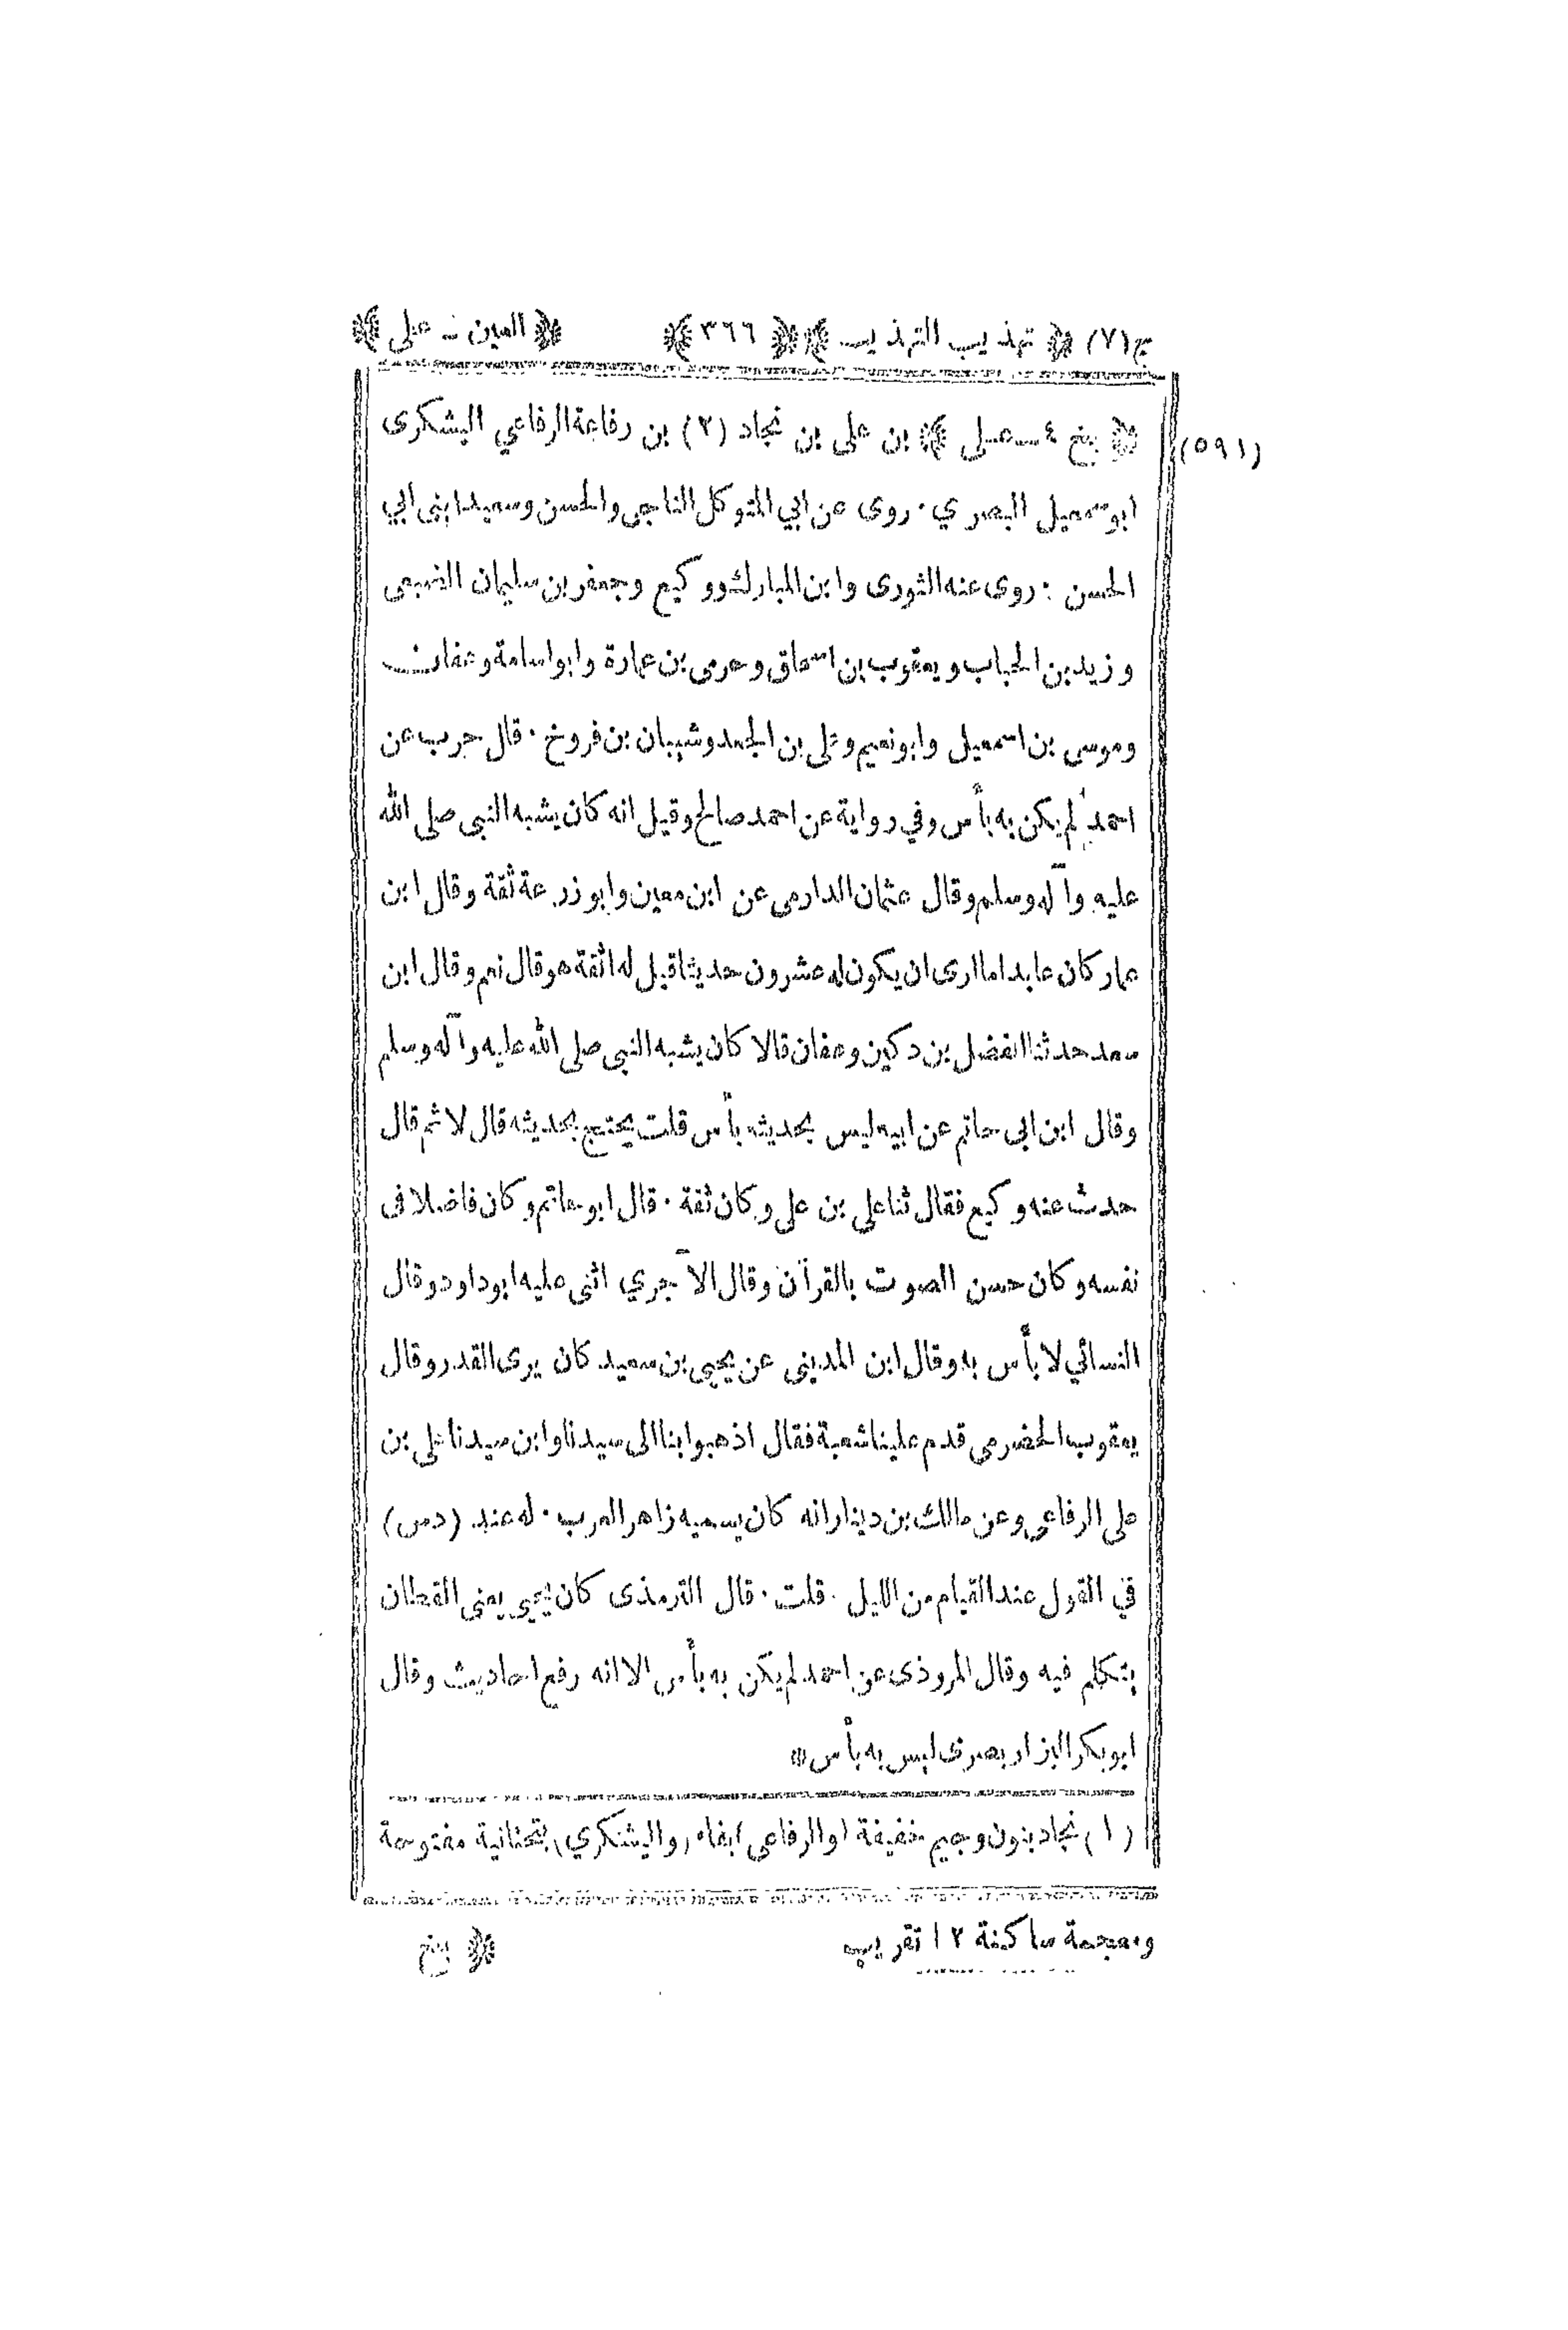 ج(٧) ﴿ تهذيب التهذيب ﴾ ﴿ ٣٦٦ ﴾ ﴿ العين - على ﴾
(٥٩١) ﴿ بخ ٤ - على ﴾ بن على بن نجاد (٢) بن رفاعة الرفاعي اليشكرى
ابو اسمعيل البصري · روى عن ابي المتوكل الناجى والحسن وسعيد ابنى ابي
الحسن : روى عنه الثورى وابن المبارك ووكيع وجعفر بن سليمان الضبعى
وزيد بن الحباب ويعقوب بن اسحاق وحرمى بن عمارة وابو اسامة وعفان
وموسى بن اسمعيل وابو نعيم وعلى بن الجعد وشيبان بن فروخ · قال حرب عن
احمد لم يكن به بأس وفي رواية عن احمد صالح وقيل انه كان يشبه النبى صلى الله
عليه وآله وسلم وقال عثمان الدارمى عن ابن معين وابو زرعة ثقة وقال ابن
عمار كان عابدا ما ارى ان يكون له عشرون حديثا قيل له اثقة هو قال نعم وقال ابن
سعد حدثنا الفضل بن دكين وعفان قالا كان يشبه النبى صلى الله عليه وآله وسلم
وقال ابن ابى حاتم عن ابيه ليس بحديثه بأس قلت يحتج بحديثه قال لا ثم قال
حدث عنه وكيع فقال ثنا على بن على وكان ثقة · قال ابو حاتم وكان فاضلا فى
نفسه وكان حسن الصوت بالقرآن وقال الآجري اثنى عليه ابو داود وقال
النسائي لا بأس به وقال ابن المدينى عن يحيى بن سعيد كان يرى القدر وقال
يعقوب الحضرمى قدم علينا شعبة فقال اذهبوا بنا الى سيدنا وابن سيدنا على بن
على الرفاعى وعن مالك بن دينار انه كان يسميه زاهر العرب · له عند (دس)
في القول عند القيام من الليل · قلت · قال الترمذى كان يحيى يعنى القطان
يتكلم فيه وقال المروذى عن احمد لم يكن به بأس الا انه رفع احاديث وقال
ابو بكر البزار بصرى ليس به بأس *
(١) نجاد بنون وجيم خفيفة (والرفاعى) بفاء (واليشكري) بتحتانية مفتوحة
ومعجمة ساكنة ١٢ تقريب ﴿ بخ